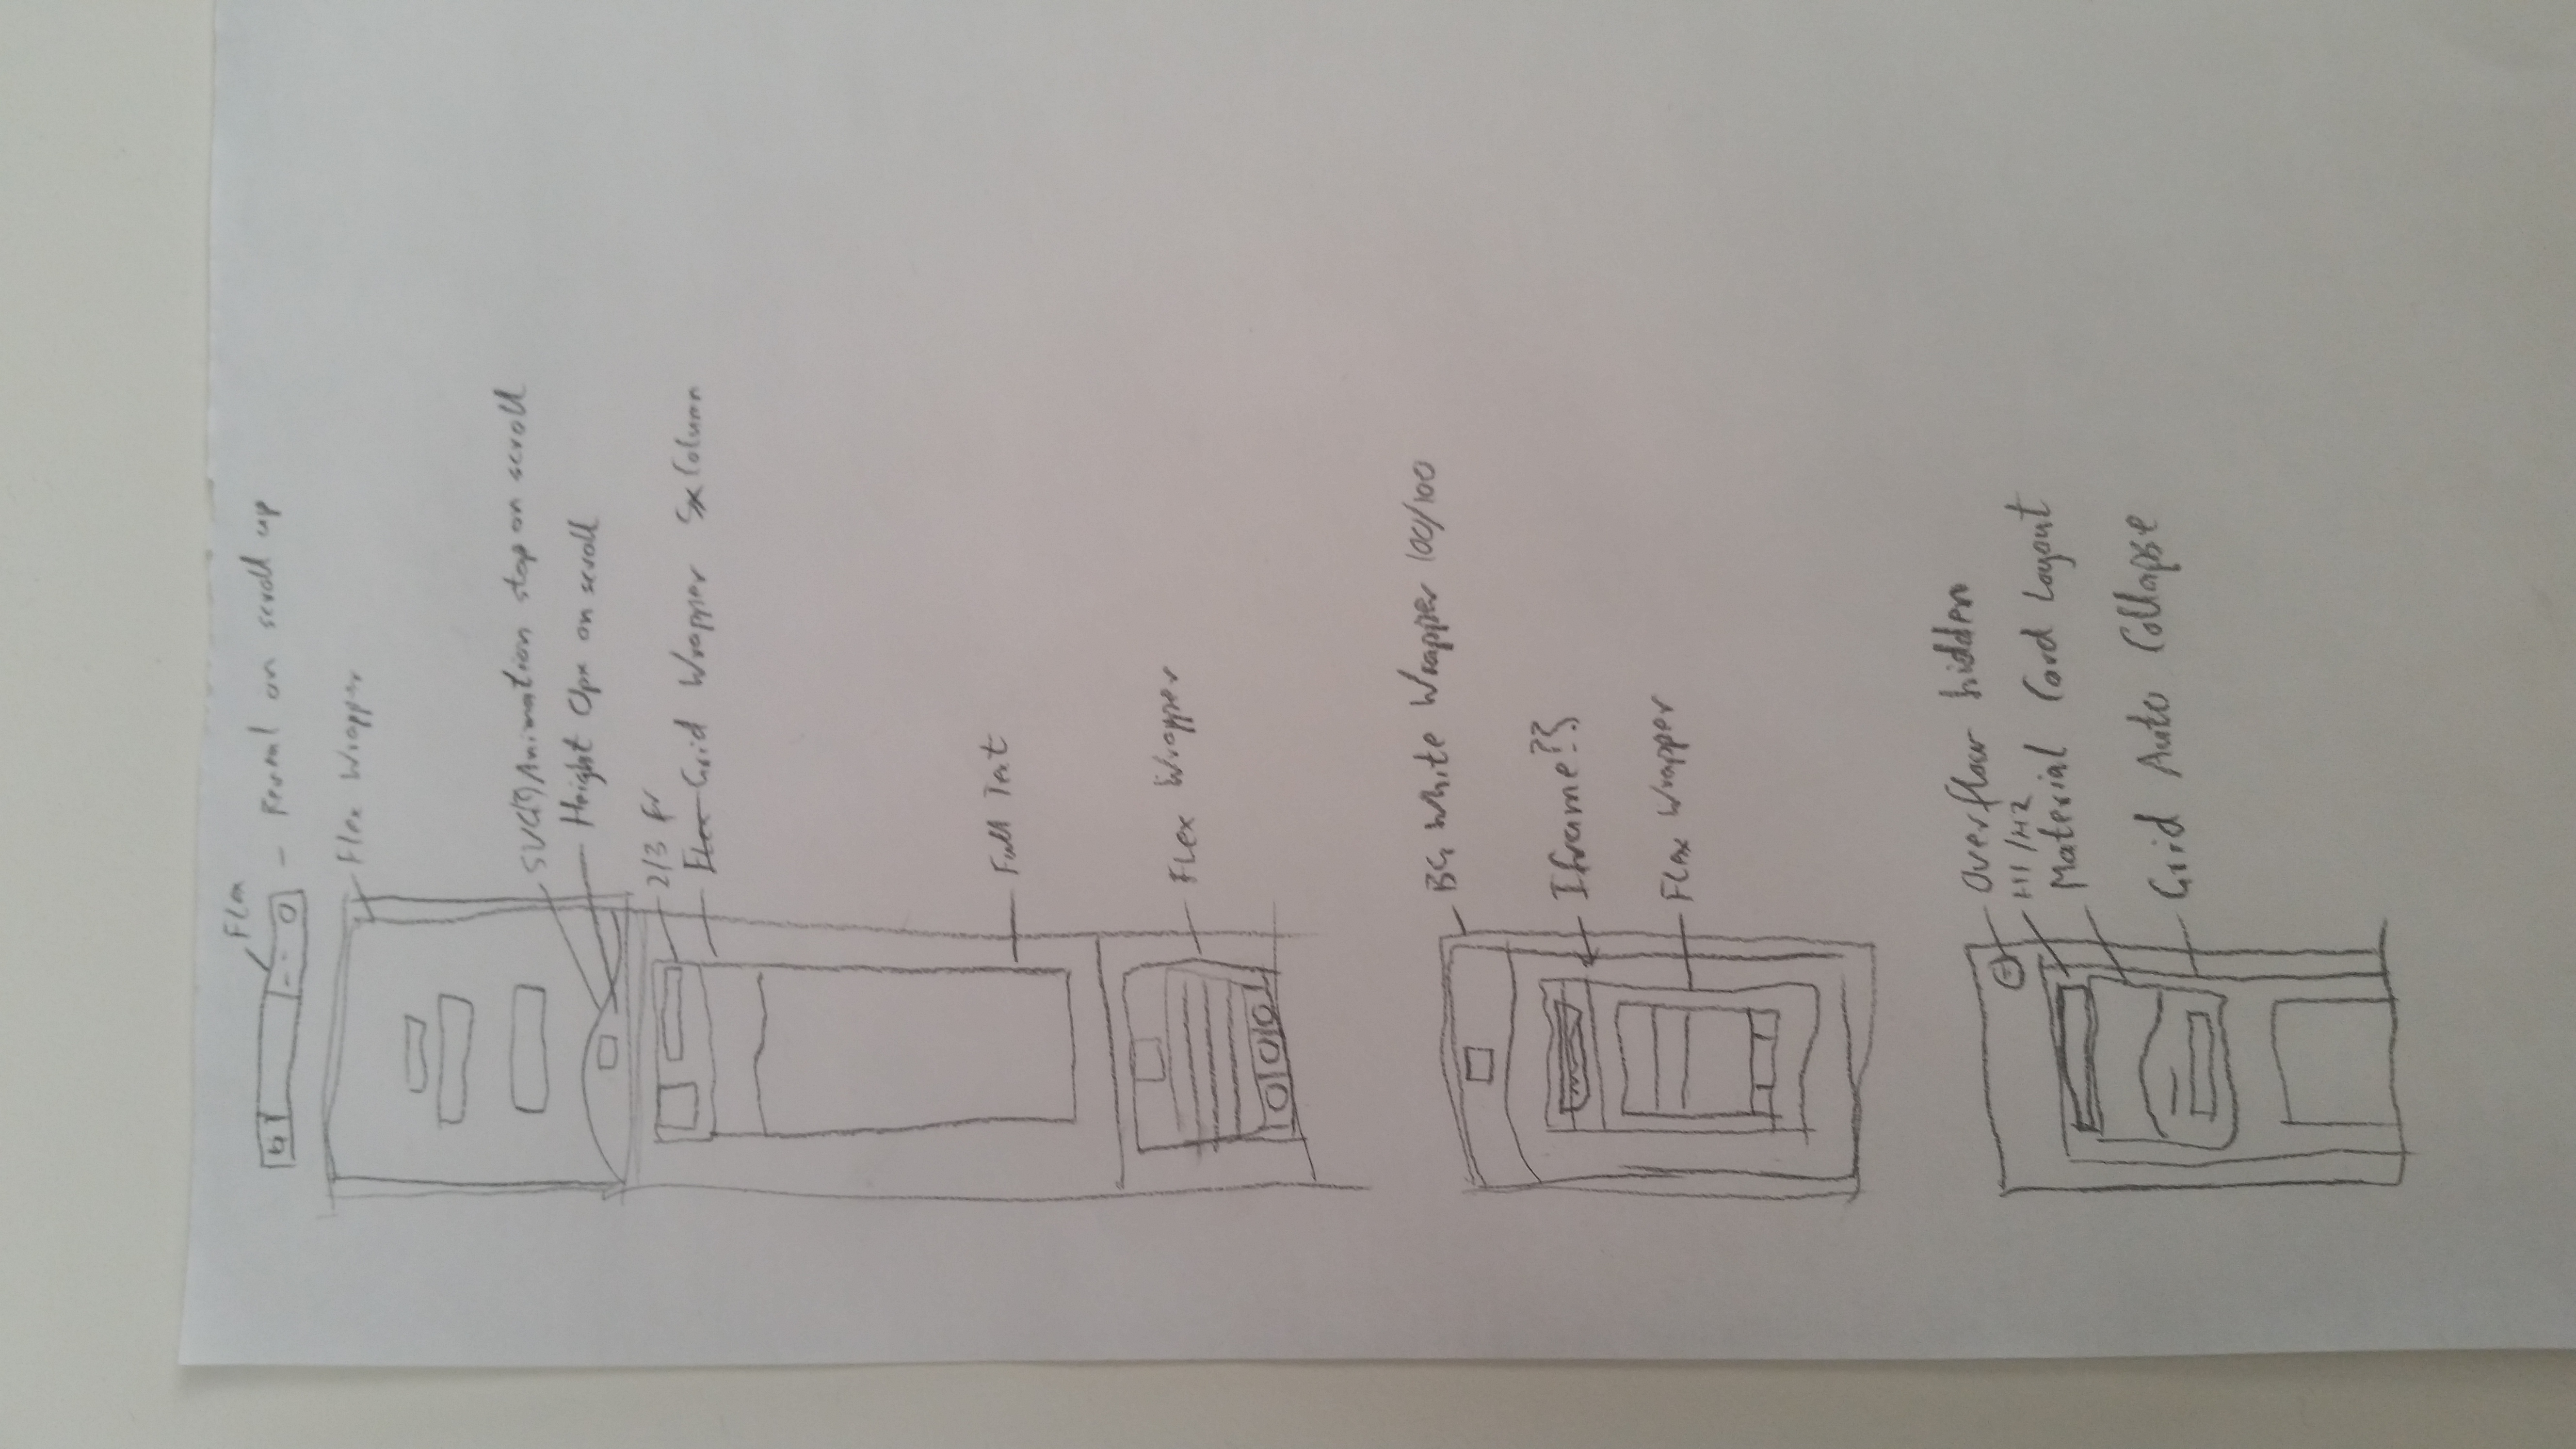 Flex
- Reveal on scroll up
Flex Wrapper
SVG(?) Animation stop on scroll
Height 0px on scroll
2/3 fr
Flex Grid Wrapper 5x Column
Full Text
Flex Wrapper
BG White Wrapper 100/100
Iframe??
Flex Wrapper
Overflow hidden
H1/H2
Material Card Layout
Grid Auto Collapse